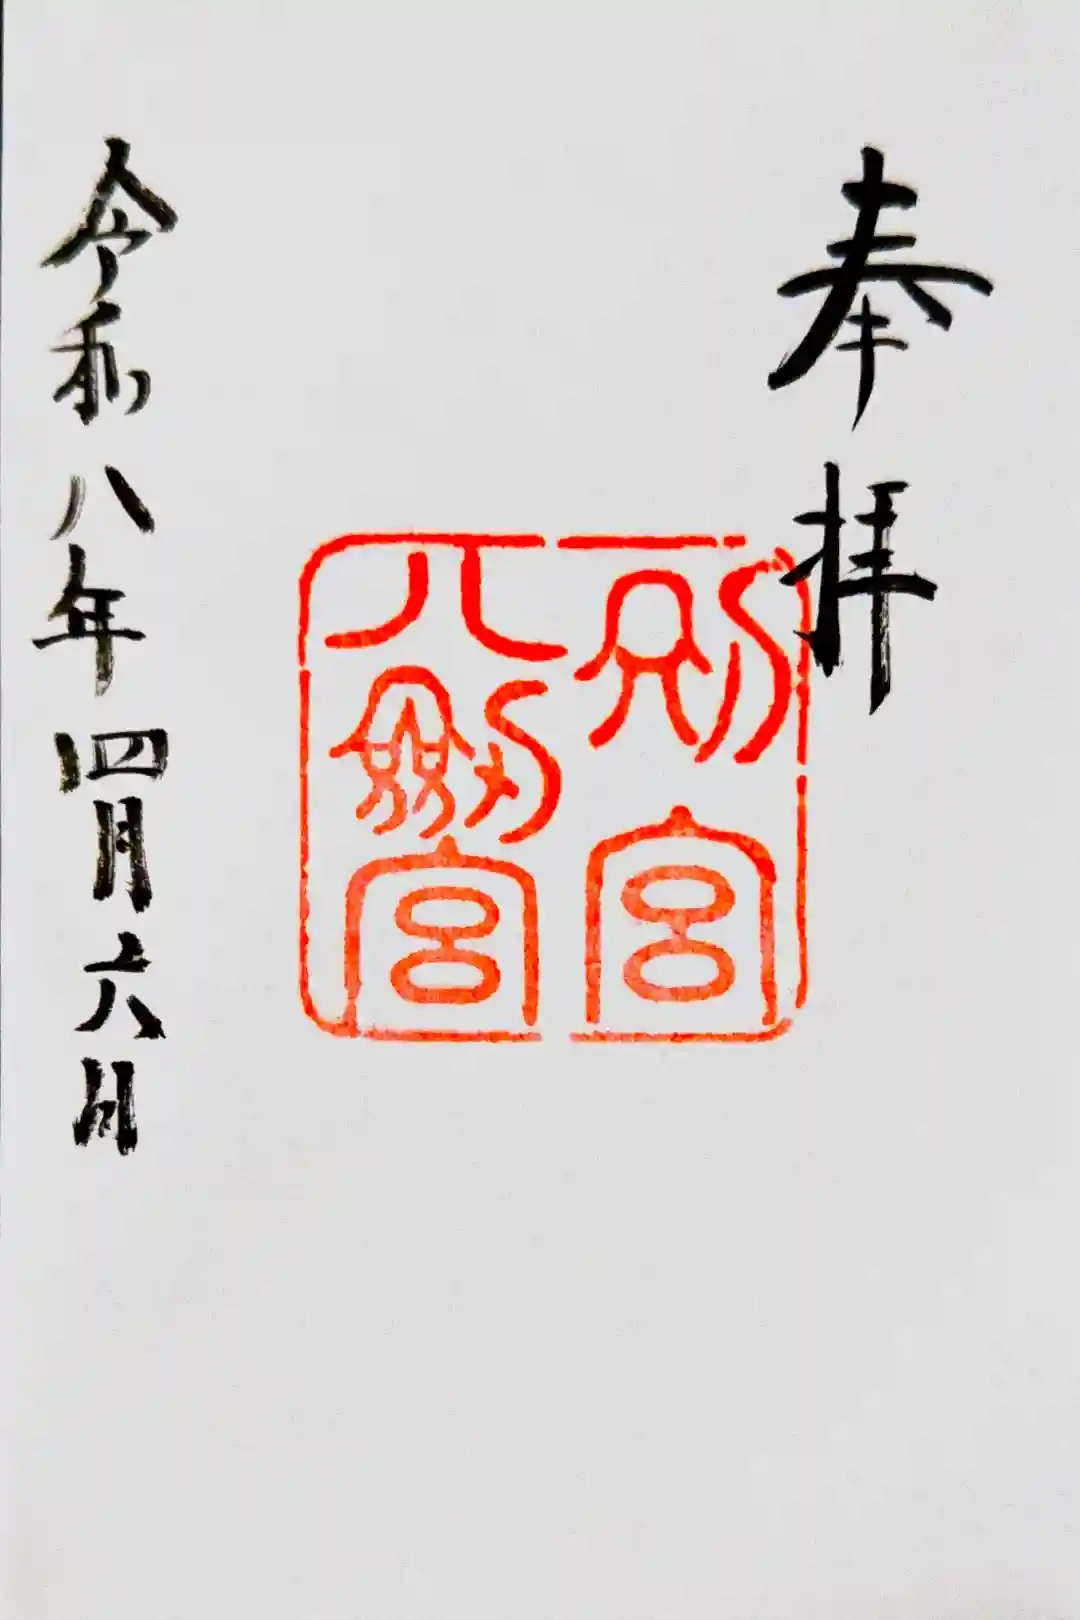 奉拝
別宮
八劔宮
令和八年四月六日